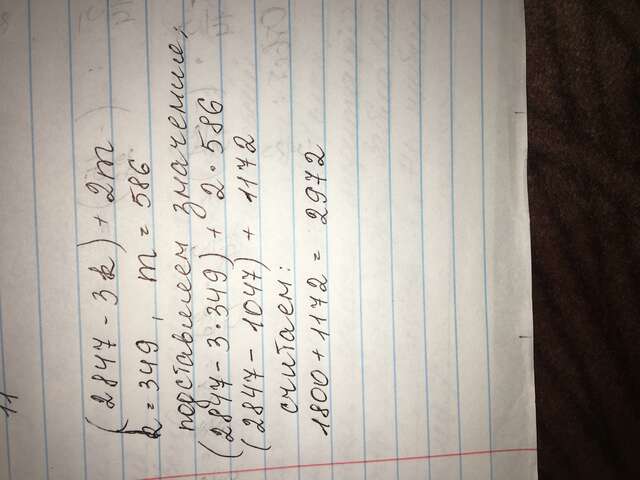 11
(2847 - 3k) + 2m
k = 349, m = 586
подставляем значение,
(2847 - 3·349) + 2·586
(2847 - 1047) + 1172
считаем:
1800 + 1172 = 2972